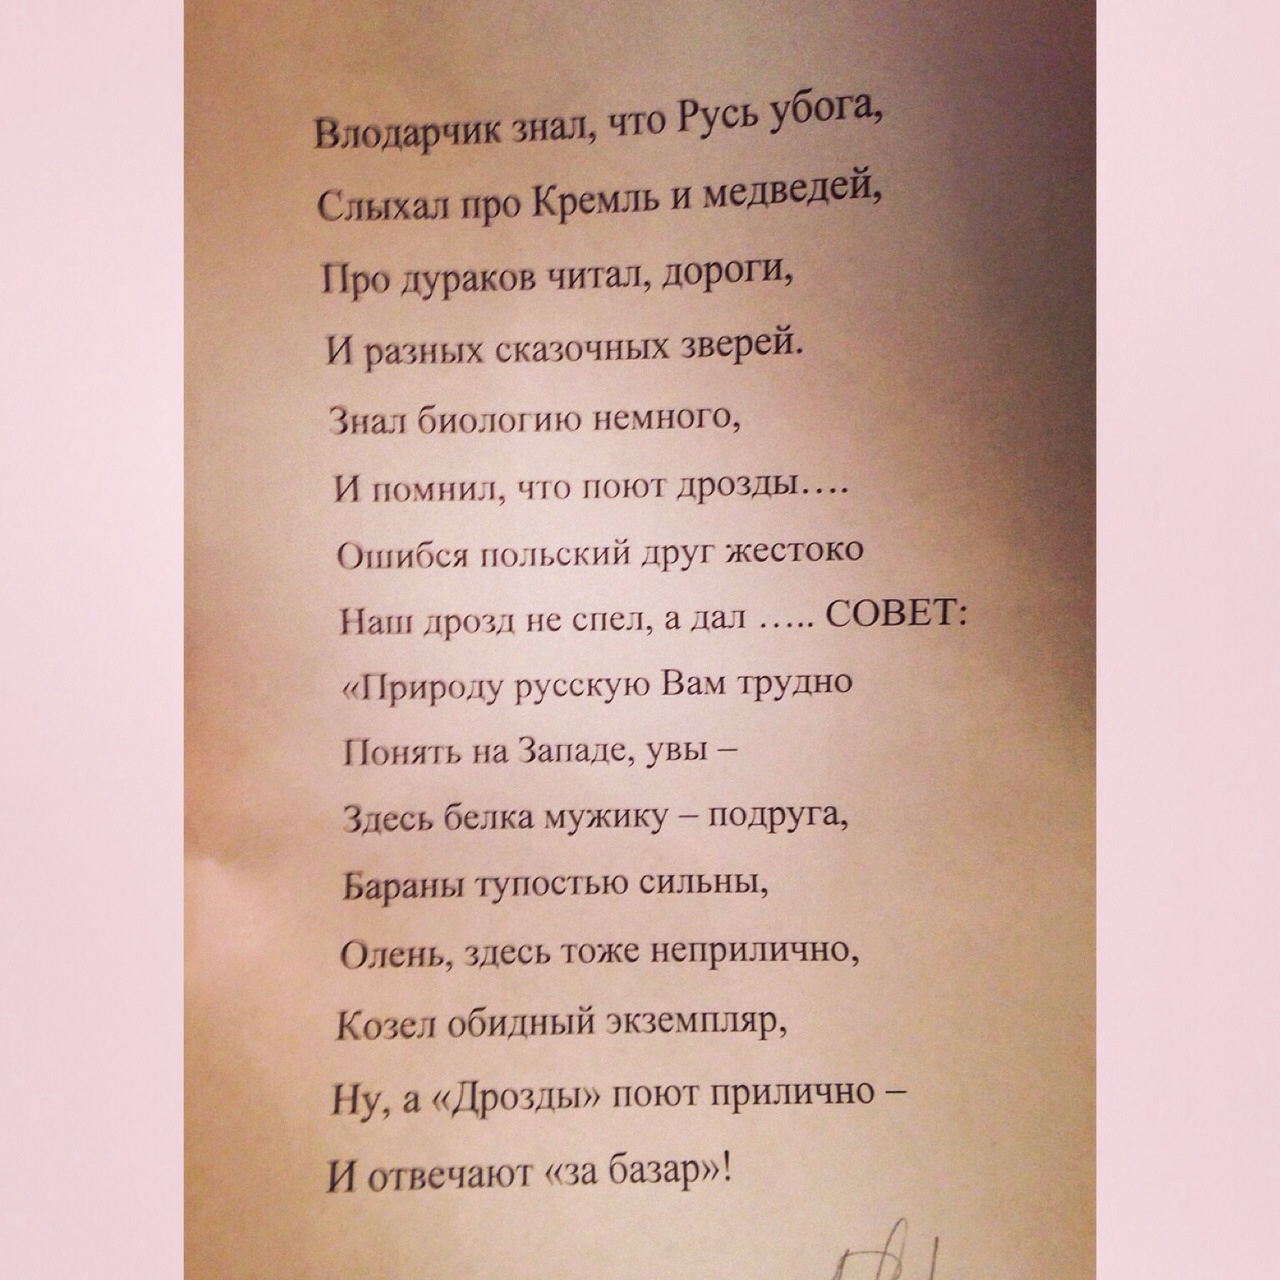 Влодарчик знал, что Русь убога,
Слыхал про Кремль и медведей,
Про дураков читал, дороги,
И разных сказочных зверей.
Знал биологию немного,
И помнил, что поют дрозды….
Ошибся польский друг жестоко
Наш дрозд не спел, а дал ….. СОВЕТ:
«Природу русскую Вам трудно
Понять на Западе, увы –
Здесь белка мужику – подруга,
Бараны тупостью сильны,
Олень, здесь тоже неприлично,
Козел обидный экземпляр,
Ну, а «Дрозды» поют прилично –
И отвечают «за базар»!